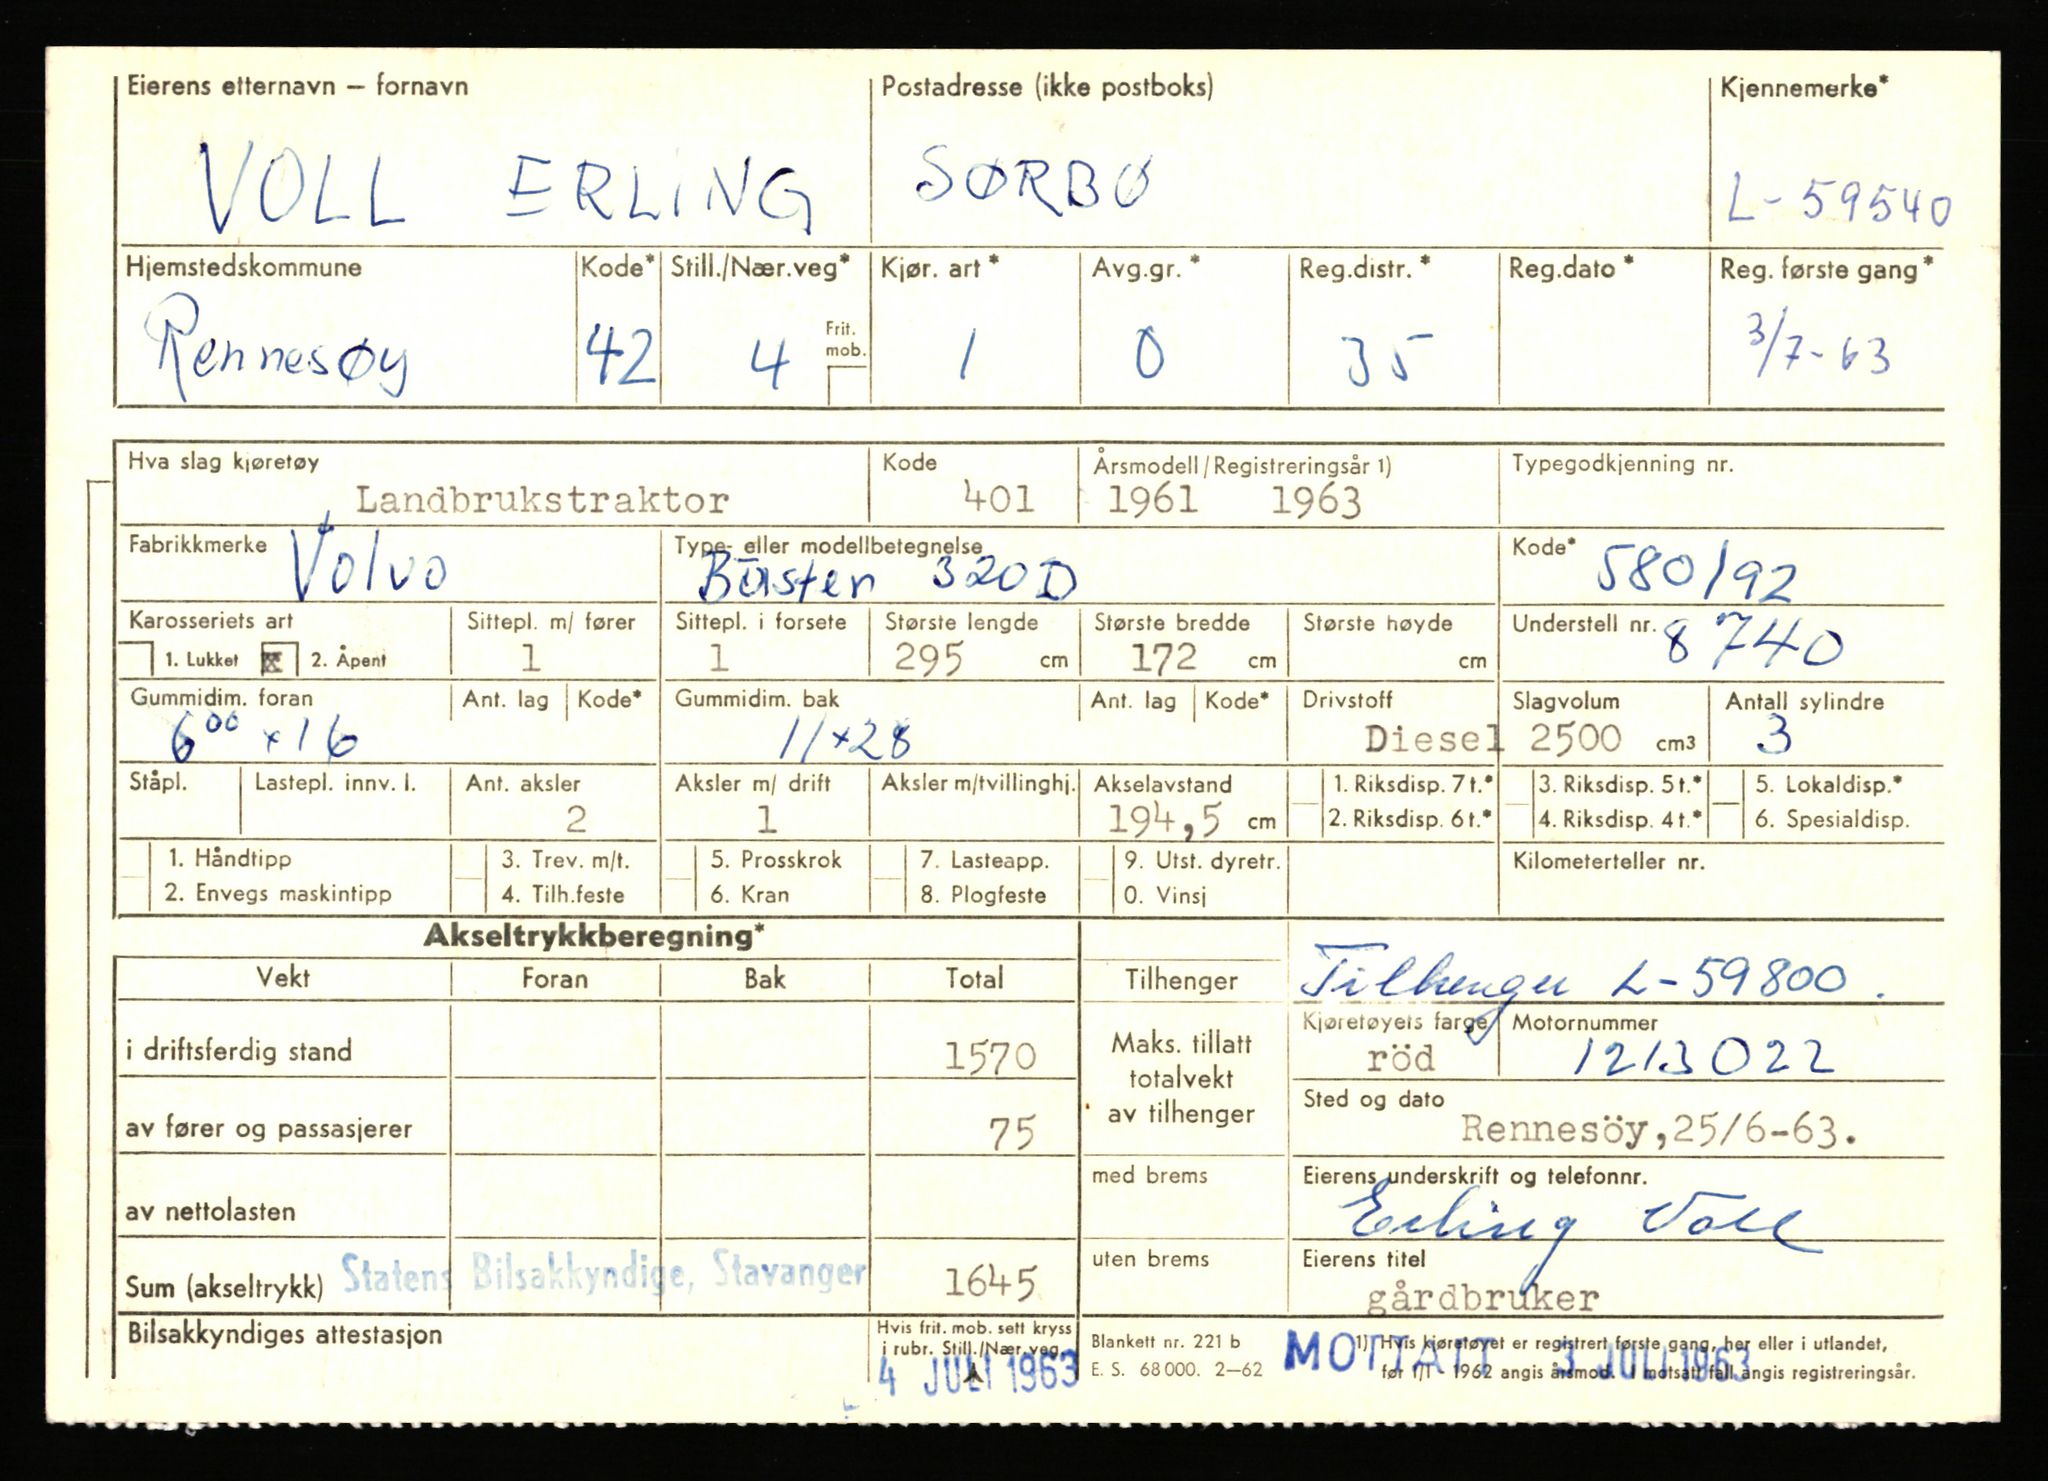 Eierens etternavn – fornavn Postadresse (ikke postboks) Kjennemerke*
VOLL ERLING SØRBØ L-59540
Hjemstedskommune Kode* Still./Nær.veg* Kjør. art * Avg.gr. * Reg.distr. * Reg.dato * Reg. første gang*
Rennesøy 42 4 Frit. mob. 1 0 35 3/7-63
Hva slag kjøretøy Kode Årsmodell/Registreringsår 1) Typegodkjenning nr.
Landbrukstraktor 401 1961 1963
Fabrikkmerke Volvo Type- eller modellbetegnelse Kode* 580/92
Buster 320D
Karosseriets art Sittepl. m/ fører Sittepl. i forsete Største lengde Største bredde Største høyde Understell nr. 8740
1. Lukket x 2. Åpent 1 1 295 cm 172 cm cm
Gummidim. foran Ant. lag Kode* Gummidim. bak Ant. lag Kode* Drivstoff Slagvolum Antall sylindre
6⁰⁰ x 16 11x28 Diesel 2500 cm3 3
Ståpl. Lastepl. innv. l. Ant. aksler Aksler m/ drift Aksler m/tvillinghj. Akselavstand 1. Riksdisp. 7 t.* 3. Riksdisp. 5 t.* 5. Lokaldisp.*
2 1 194,5 cm 2. Riksdisp. 6 t.* 4. Riksdisp. 4 t.* 6. Spesialdisp.
1. Håndtipp 3. Trev. m/t. 5. Prosskrok 7. Lasteapp. 9. Utst. dyretr. Kilometerteller nr.
2. Envegs maskintipp 4. Tilh.feste 6. Kran 8. Plogfeste 0. Vinsj
Akseltrykkberegning*
Vekt Foran Bak Total Tilhenger Tilhenger L-59800.
Kjøretøyets farge Motornummer
i driftsferdig stand 1570 Maks. tillatt röd 1213022
totalvekt
av tilhenger Sted og dato
av fører og passasjerer 75 Rennesöy,25/6-63.
med brems Eierens underskrift og telefonnr.
av nettolasten Erling Voll
uten brems Eierens titel
Sum (akseltrykk) Statens Bilsakkyndige, Stavanger 1645 gårdbruker
Bilsakkyndiges attestasjon Hvis frit. mob. sett kryss
i rubr. Still./Nær.veg.
4 JULI 1963
Blankett nr. 221 b
E. S. 68 000. 2–62
MOTTATT 3 JULI 1963
1) Hvis kjøretøyet er registrert første gang, her eller i utlandet,
før 1/1 - 1962 angis årsmod. I motsatt fall angis registreringsår.